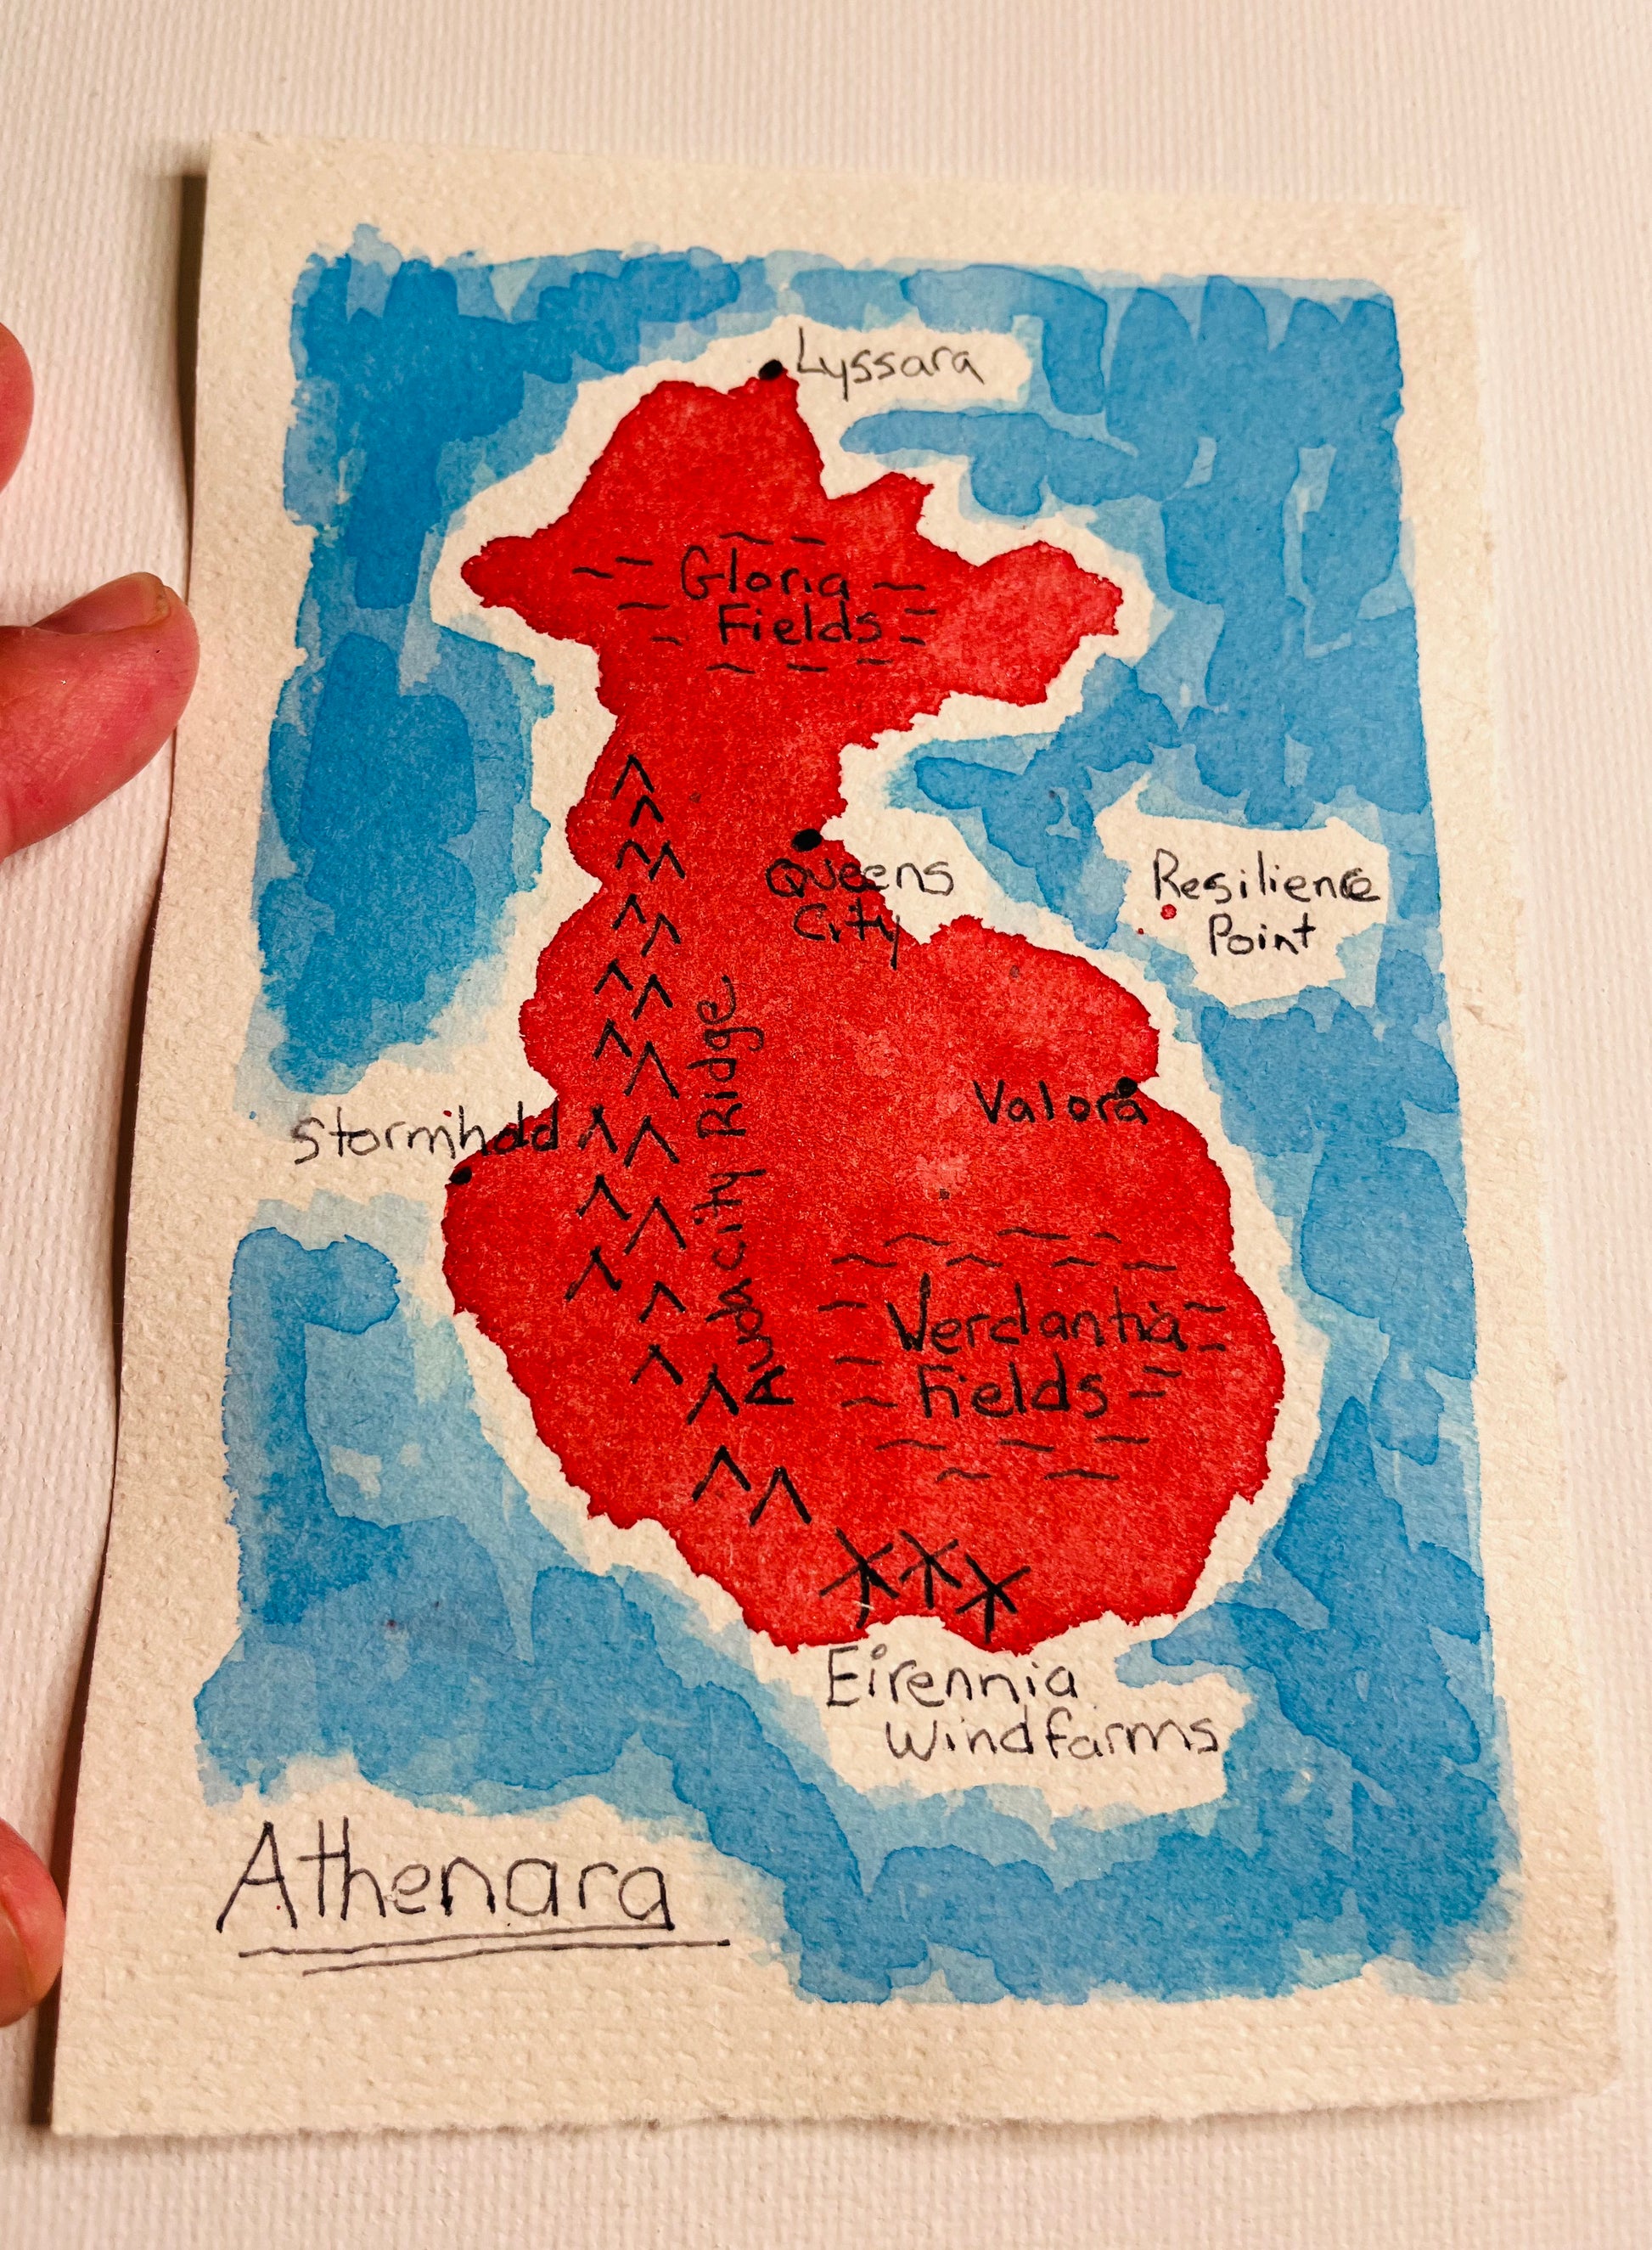 Lyssara
Gloria
Fields
Queens
City
Resilience
Point
Audacity Ridge
Valora
Stormhold
Verdantia
Fields
Eirennia
Windfarms
Athenara